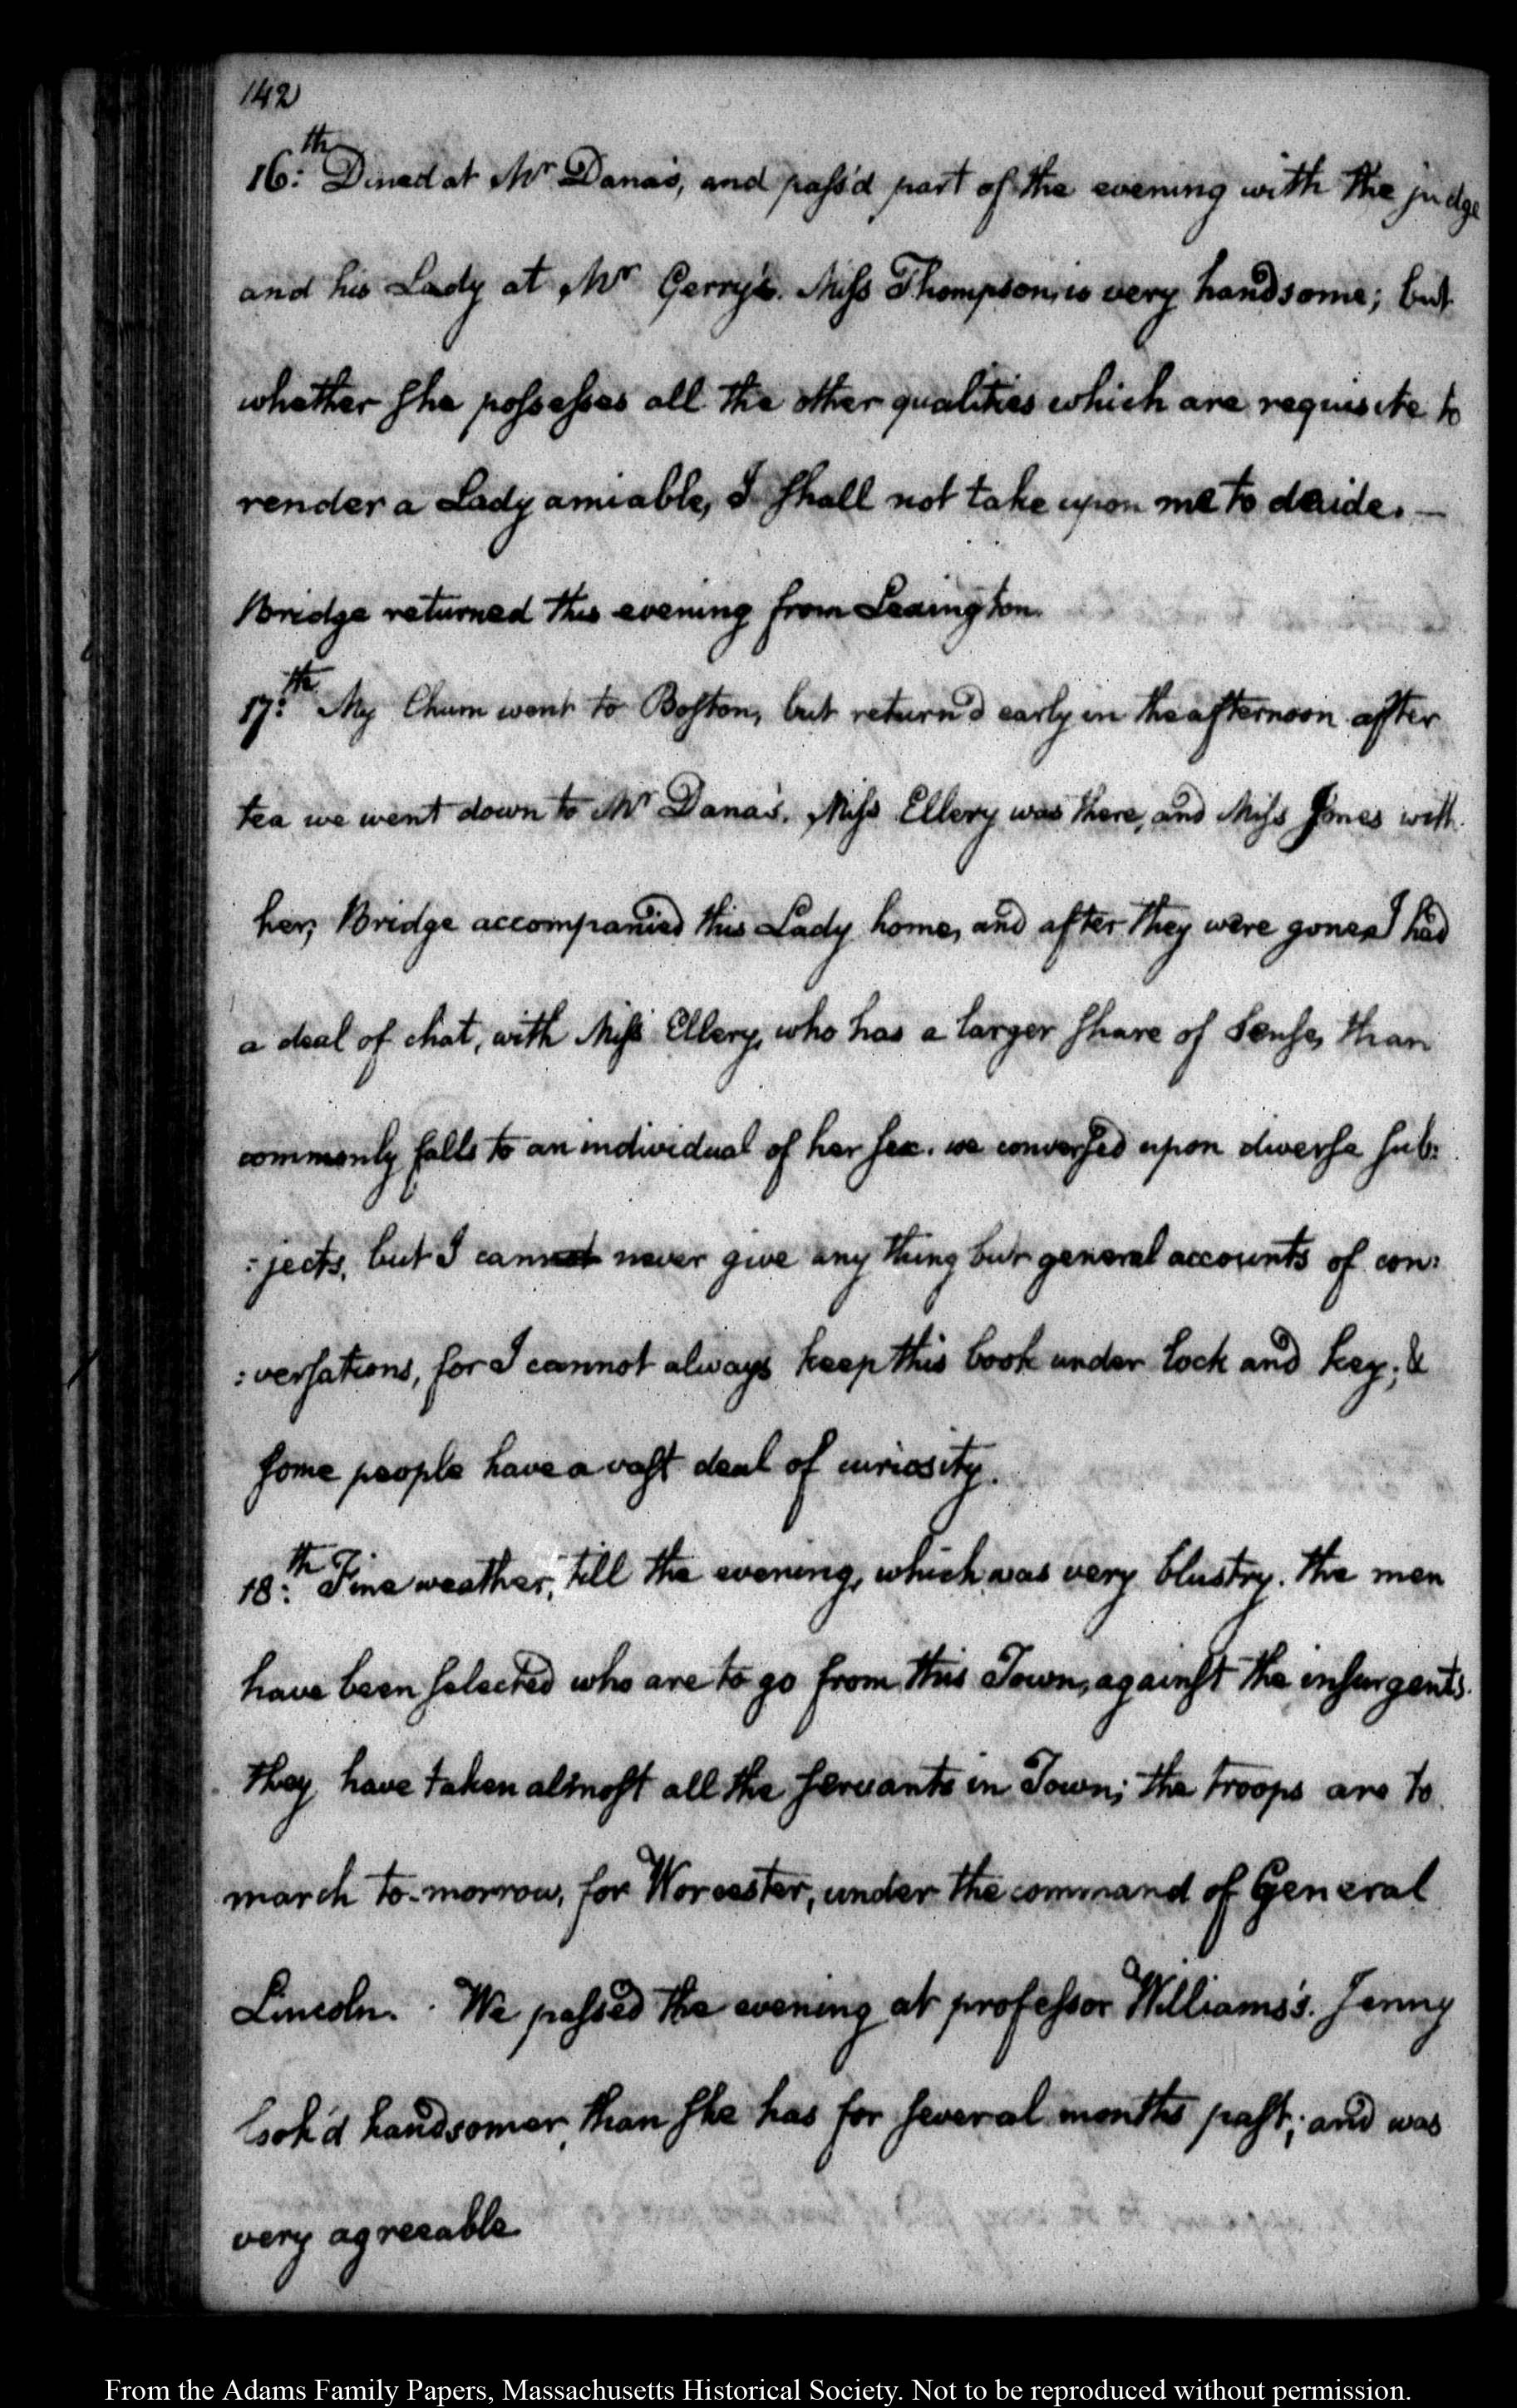 142
16:th Dined at Mr Dana's, and pass'd part of the evening with the judge
and his Lady at Mr Gerry's. Miss Thompson, is very handsome; but
whether she possesses all the other qualities which are requisite to
render a Lady amiable, I shall not take upon me to decide. —
Bridge returned this evening from Lexington.
17:th My Chum went to Boston, but return'd early in the afternoon after
tea we went down to Mr Dana's. Miss Ellery was there, and Miss Jones with
her; Bridge accompanied this Lady home, and after they were gone, I had
a deal of chat, with Miss Ellery, who has a larger share of Sense, than
commonly falls to an individual of her sex. we conversed upon diverse sub:
:jects, but I cannot never give any thing but general accounts of con:
:versations, for I cannot always keep this book under lock and key; &
some people have a vast deal of curiosity.
18:th Fine weather, till the evening, which was very blustry. the men
have been selected who are to go from this Town, against the insurgents.
they have taken almost all the servants in Town; the troops are to
march to-morrow, for Worcester, under the command of General
Lincoln. We passed the evening at professor Williams's. Jenny
look'd handsomer, than she has for several months past; and was
very agreeable
From the Adams Family Papers, Massachusetts Historical Society. Not to be reproduced without permission.